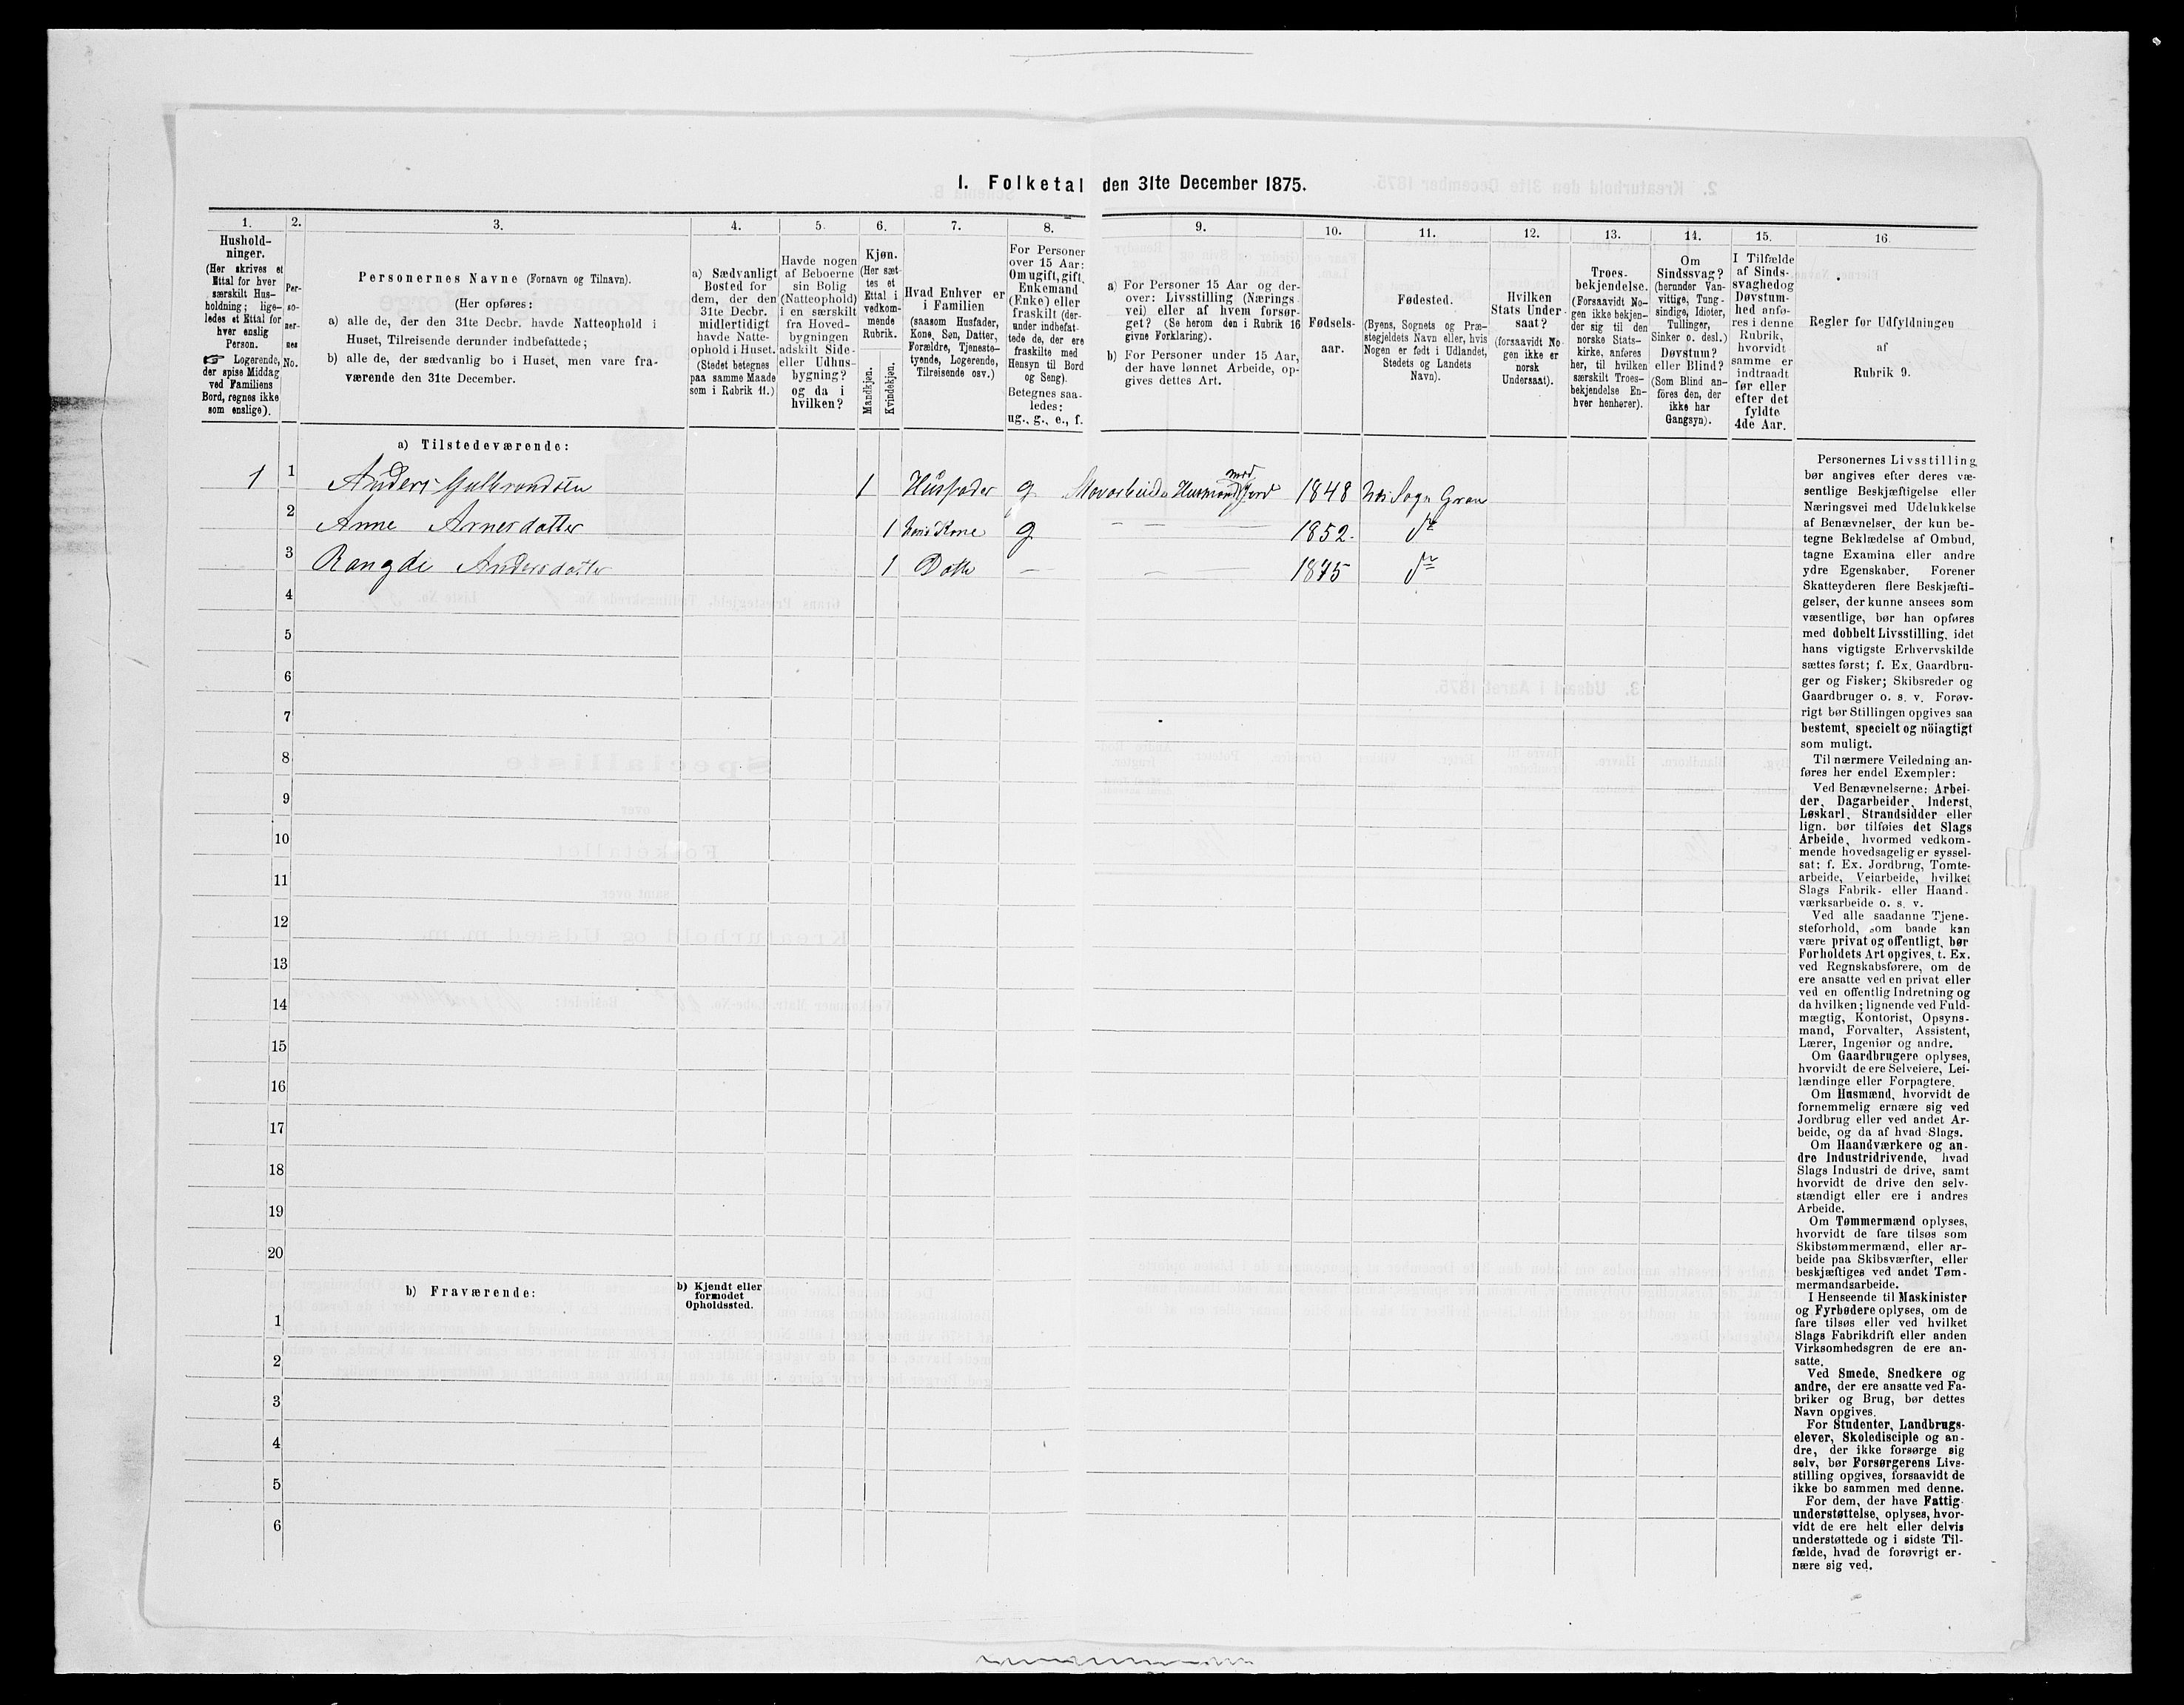 I. Folketal den 31te December 1875.
1.
2.
3.
4.
5.
6.
7.
8.
9.
10.
11.
12.
13.
14.
15.
16.
Hushold-
ninger.
(Her skrives et
Ettal for hver
særskilt Hus-
holdning; lige-
ledes et Ettal for
hver enslig
Person.
☞ Logerende,
der spise Middag
ved Familiens
Bord, regnes ikke
som enslige).
Per-
so-
ner-
nes
No.
Personernes Navne (Fornavn og Tilnavn).
(Her opføres:
a) alle de, der den 31te Decbr. havde Natteophold i
Huset, Tilreisende derunder indbefattede;
b) alle de, der sædvanlig bo i Huset, men vare fra-
værende den 31te December.
a) Sædvanligt
Bosted for
dem, der den
31te Decbr.
midlertidigt
havde Natte-
ophold i Huset.
(Stedet betegnes
paa samme Maade
som i Rubrik 11.)
Havde nogen
af Beboerne
sin Bolig
(Natteophold)
i en særskilt
fra Hoved-
bygningen
adskilt Side-
eller Udhus-
bygning?
og da i
hvilken?
Kjøn.
(Her sæt-
tes et
Ettal i
vedkom-
mende
Rubrik.
Mandkjøn.
Kvindekjøn.
Hvad Enhver er
i Familien
(saasom Husfader,
Kone, Søn, Datter,
Forældre, Tjeneste-
tyende, Logerende,
Tilreisende osv.)
For Personer
over 15 Aar:
Om ugift, gift,
Enkemand
(Enke) eller
fraskilt (der-
under indbefat-
tede de, der ere
fraskilte med
Hensyn til Bord
og Seng).
Betegnes saa-
ledes:
ug., g., e., f.
a) For Personer 15 Aar og der-
over: Livsstilling (Nærings-
vei) eller af hvem forsør-
get? (Se herom den i Rubrik 16
givne Forklaring).
b) For Personer under 15 Aar,
der have lønnet Arbeide, op-
gives dettes Art.
Fødsels-
aar.
Fødested.
(Byens, Sognets og Præ-
stegjeldets Navn eller, hvis
Nogen er født i Udlandet,
Stedets og Landets
Navn).
Hvilken
Stats Under-
saat?
(forsaavidt No-
gen ikke er
norsk
Undersaat).
Troes-
bekjendelse.
(Forsaavidt No-
gen ikke bekjen-
der sig til den
norske Stats-
kirke, anføres
her, til hvilken
særskilt Troes-
bekjendelse En-
hver henhører).
Om
Sindssvag?
(herunder Van-
vittige, Tung-
sindige, Idioter,
Tullinger,
Sinker o. desl.)
Døvstum?
eller Blind?
(Som Blind an-
føres den, der
ikke har
Gangsyn).
I Tilfælde
af Sinds-
svaghed og
Døvstum-
hed anfø-
res i denne
Rubrik,
hvorvidt
samme er
indtraadt
før eller
efter det
fyldte
4de Aar.
Regler for Udfyldningen
af
Rubrik 9.
a) Tilstedeværende:
1 1 Anders Gulbrandsen 1 Husfader g Husmand med Jord 1848 Sogn Gran
2 Anne Arnesdatter 1 Kone g — — — 1852. do
3 Rangdi Andersdatter 1 Datte — — — 1875 do
4
5
6
7
8
9
10
11
12
13
14
15
16
17
18
19
20
b) Fraværende:
b) Kjendt eller
formodet
Opholdssted.
1
2
3
4
5
6
Personernes Livsstilling
bør angives efter deres væ-
sentlige Beskjæftigelse eller
Næringsvei med Udelukkelse
af Benævnelser, der kun be-
tegne Beklædelse af Ombud,
tagne Examina eller andre
ydre Egenskaber. Forener
Skatteyderen flere Beskjæfti-
gelser, der kunne ansees som
væsentlige, bør han opføres
med dobbelt Livsstilling, idet
hans vigtigste Erhvervskilde
sættes først; f. Ex. Gaardbru-
ger og Fisker; Skibsreder og
Gaardbruger o. s. v. Forøv-
rigt bør Stillingen opgives saa
bestemt, specielt og nöiagtigt
som muligt.
Til nærmere Veiledning an-
føres her endel Exempler:
Ved Benævnelserne: Arbei-
der, Dagarbeider, Inderst,
Løskarl, Strandsidder eller
lign. bør tilføies det Slags
Arbeide, hvormed vedkom-
mende hovedsagelig er syssel-
sat; f. Ex. Jordbrug, Tomte-
arbeide, Veiarbeide, hvilket
Slags Fabrik- eller Haand-
værksarbeide o. s. v.
Ved alle saadanne Tjene-
steforhold, som baade kan
være privat og offentligt, bør
Forholdets Art opgives, t. Ex.
ved Regnskabsførere, om de
ere ansatte ved en privat eller
ved en offentlig Indretning og
da hvilken; lignende ved Fuld-
mægtig, Kontorist, Opsyns-
mand, Forvalter, Assistent,
Lærer, Ingeniør og andre.
Om Gaardbrugere oplyses,
hvorvidt de ere Selveiere, Lei-
lændinge eller Forpagtere.
Om Husmænd, hvorvidt de
fornemmelig ernære sig ved
Jordbrug eller ved andet Ar-
beide, og da af hvad Slags.
Om Haandværkere og an-
dre Industridrivende, hvad
Slags Industri de drive, samt
hvorvidt de drive den selv-
stændigt eller ere i andres
Arbeide.
Om Tømmermænd oplyses,
hvorvidt de fare tilsøs som
Skibstømmermænd, eller ar-
beide paa Skibsværfter, eller
beskjæftiges ved andet Tøm-
mermandsarbeide.
I Henseende til Maskinister
og Fyrbødere oplyses, om de
fare tilsøs eller ved hvilket
Slags Fabrikdrift eller anden
Virksomhedsgren de ere an-
satte.
Ved Smede, Snedkere og
andre, der ere ansatte ved Fa-
briker og Brug, bør dettes
Navn opgives.
For Studenter, Landbrugs-
elever, Skoledisciple og an-
dre, der ikke forsørge sig
selv, bør Forsørgerens Livs-
stilling opgives, forsaavidt de
ikke bo sammen med denne.
For dem, der have Fattig-
understøttelse, oplyses, hvor-
vidt de ere helt eller delvis
understøttede og i sidste Til-
fælde, hvad de forøvrigt er-
nære sig ved.